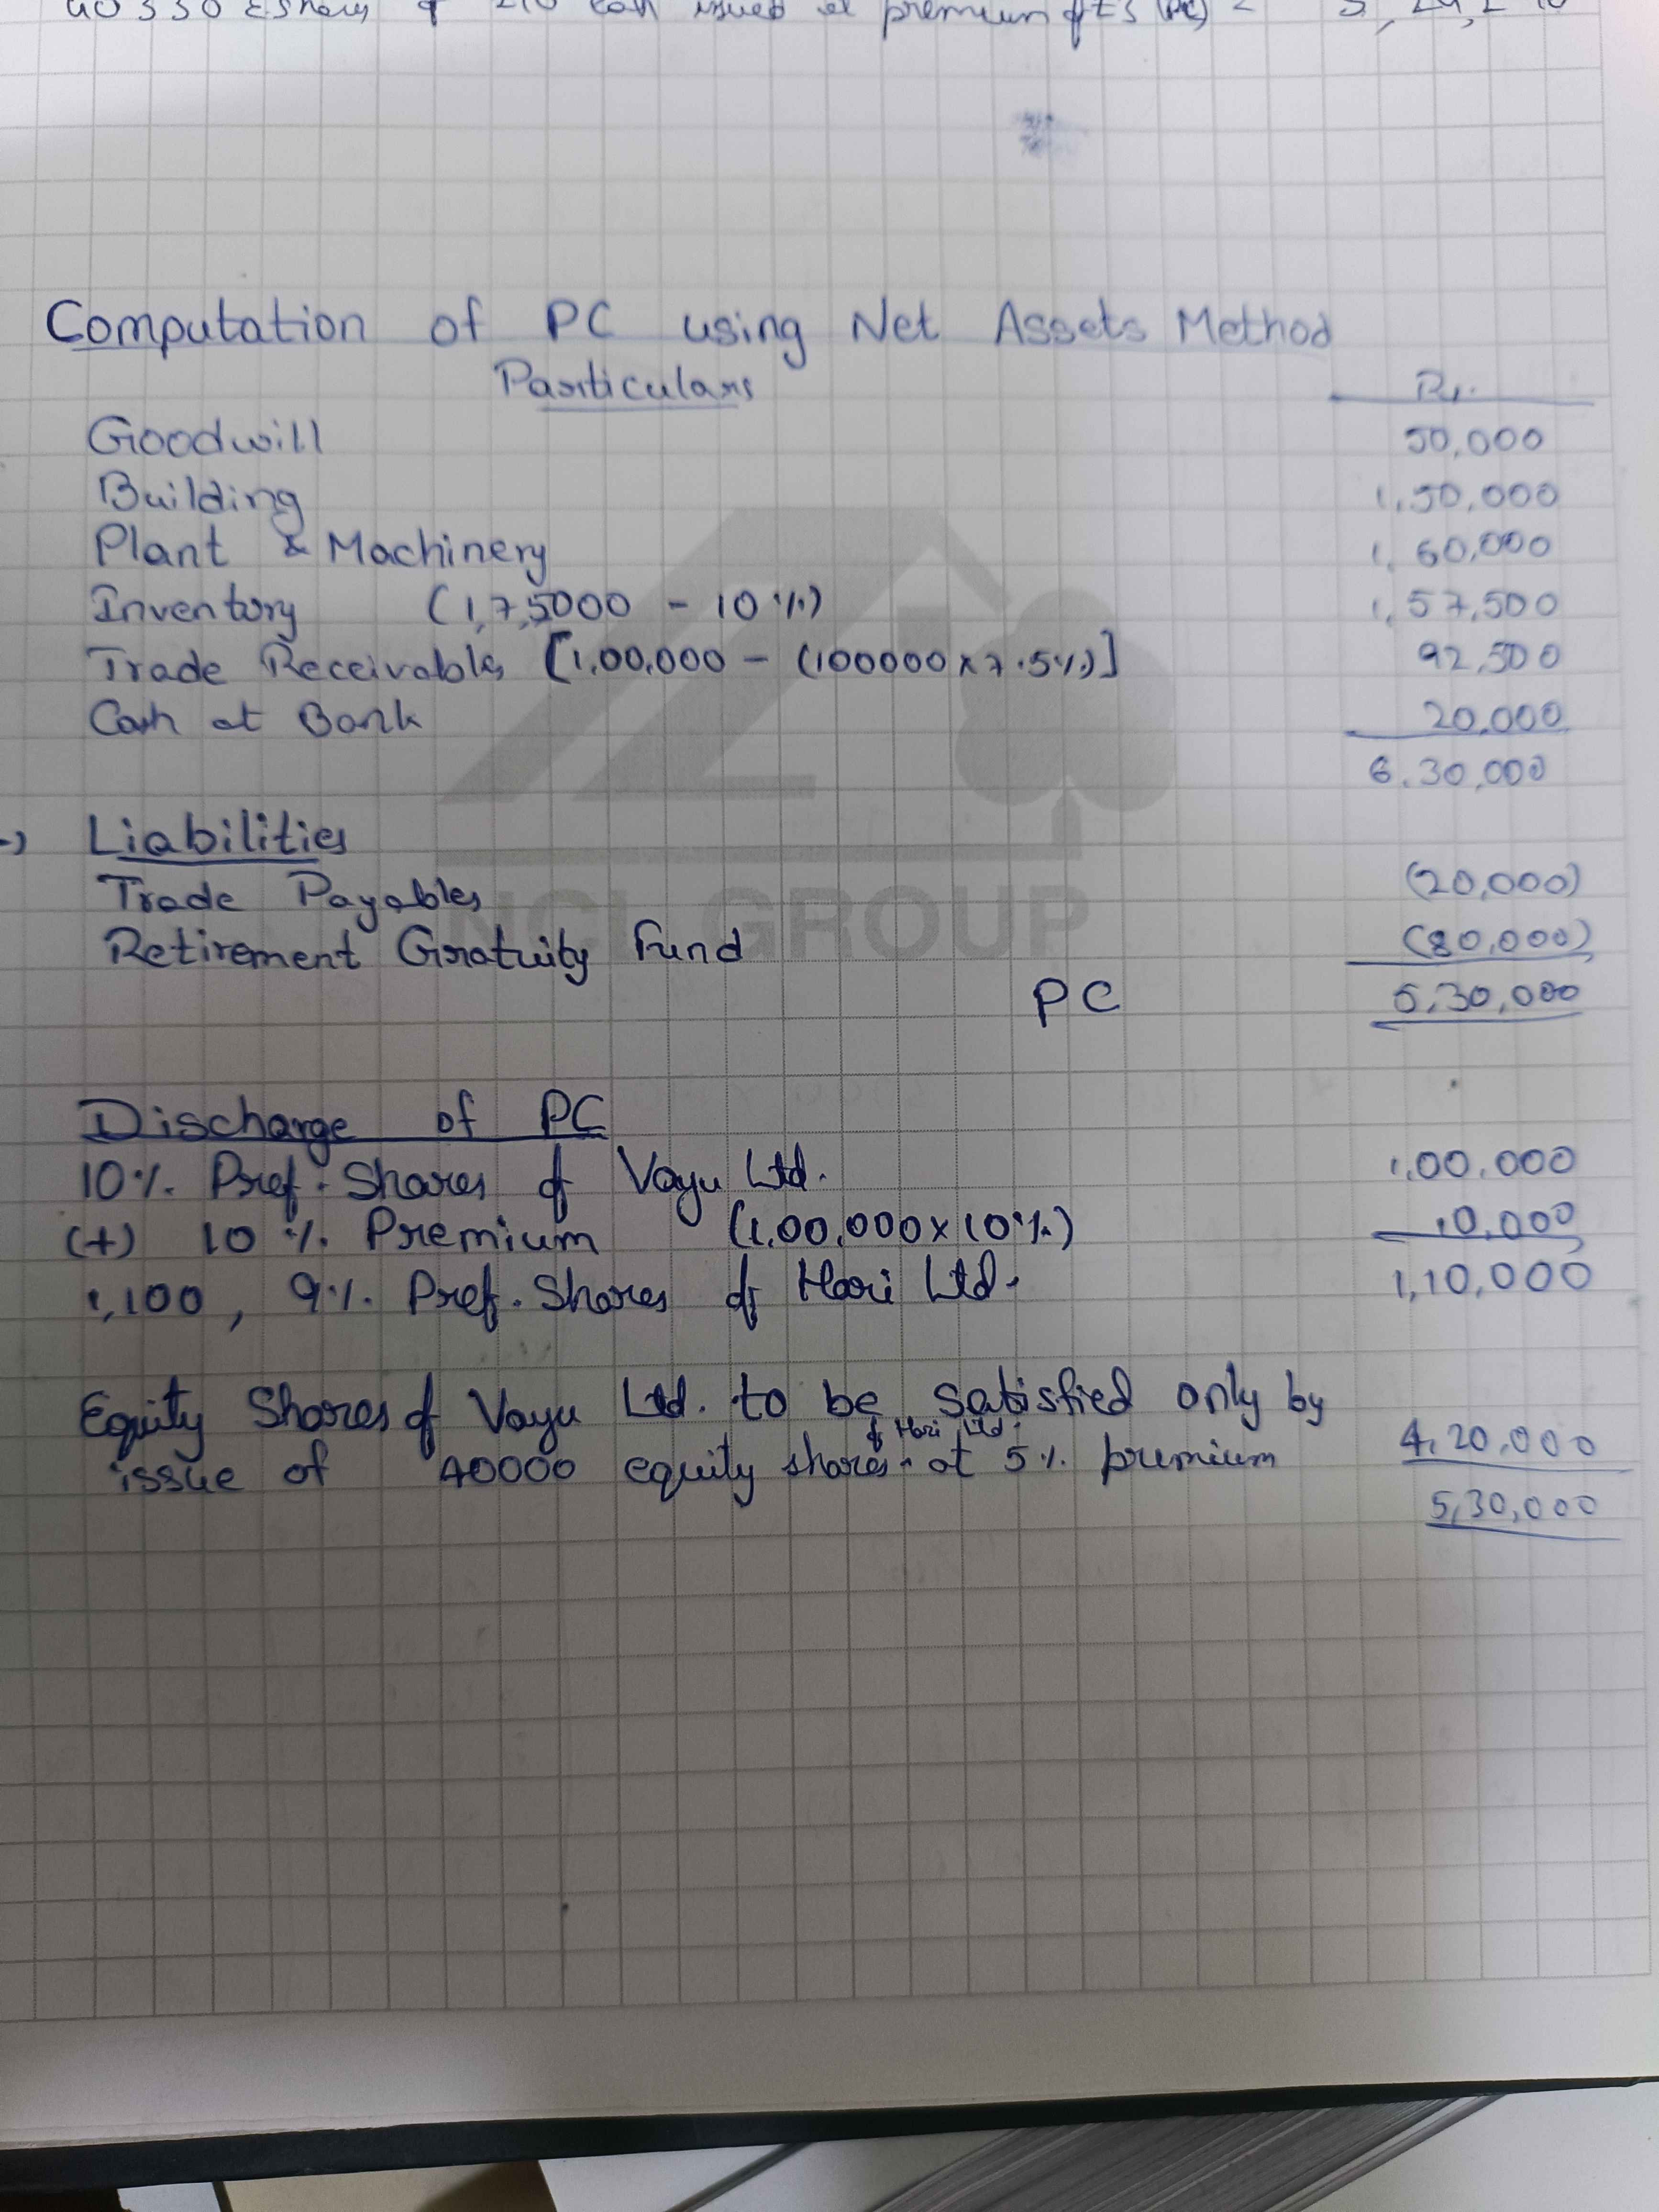 40330 E Shares of ₹10 each issued at premium of ₹3 (PC) =
Computation of PC using Net Assets Method
Particulars Rs.
Goodwill 50,000
Building 1,50,000
Plant & Machinery 1,60,000
Inventory (1,7,5000 - 10%) 1,57,500
Trade Receivables [1,00,000 - (100000 x 7.5%)] 92,500
Cash at Bank 20,000
6,30,000
-) Liabilities
Trade Payables (20,000)
Retirement Gratuity Fund (80,000)
PC 5,30,000
NCL GROUP
Discharge of PC
10% Pref. Shares of Vayu Ltd. 1,00,000
(+) 10% Premium (1,00,000 x 10%) 10,000
1,100, 9% Pref. Shares of Hari Ltd. 1,10,000
Equity Shares of Vayu Ltd. to be satisfied only by
issue of 40000 equity shares of Hari Ltd. at 5% premium 4,20,000
5,30,000